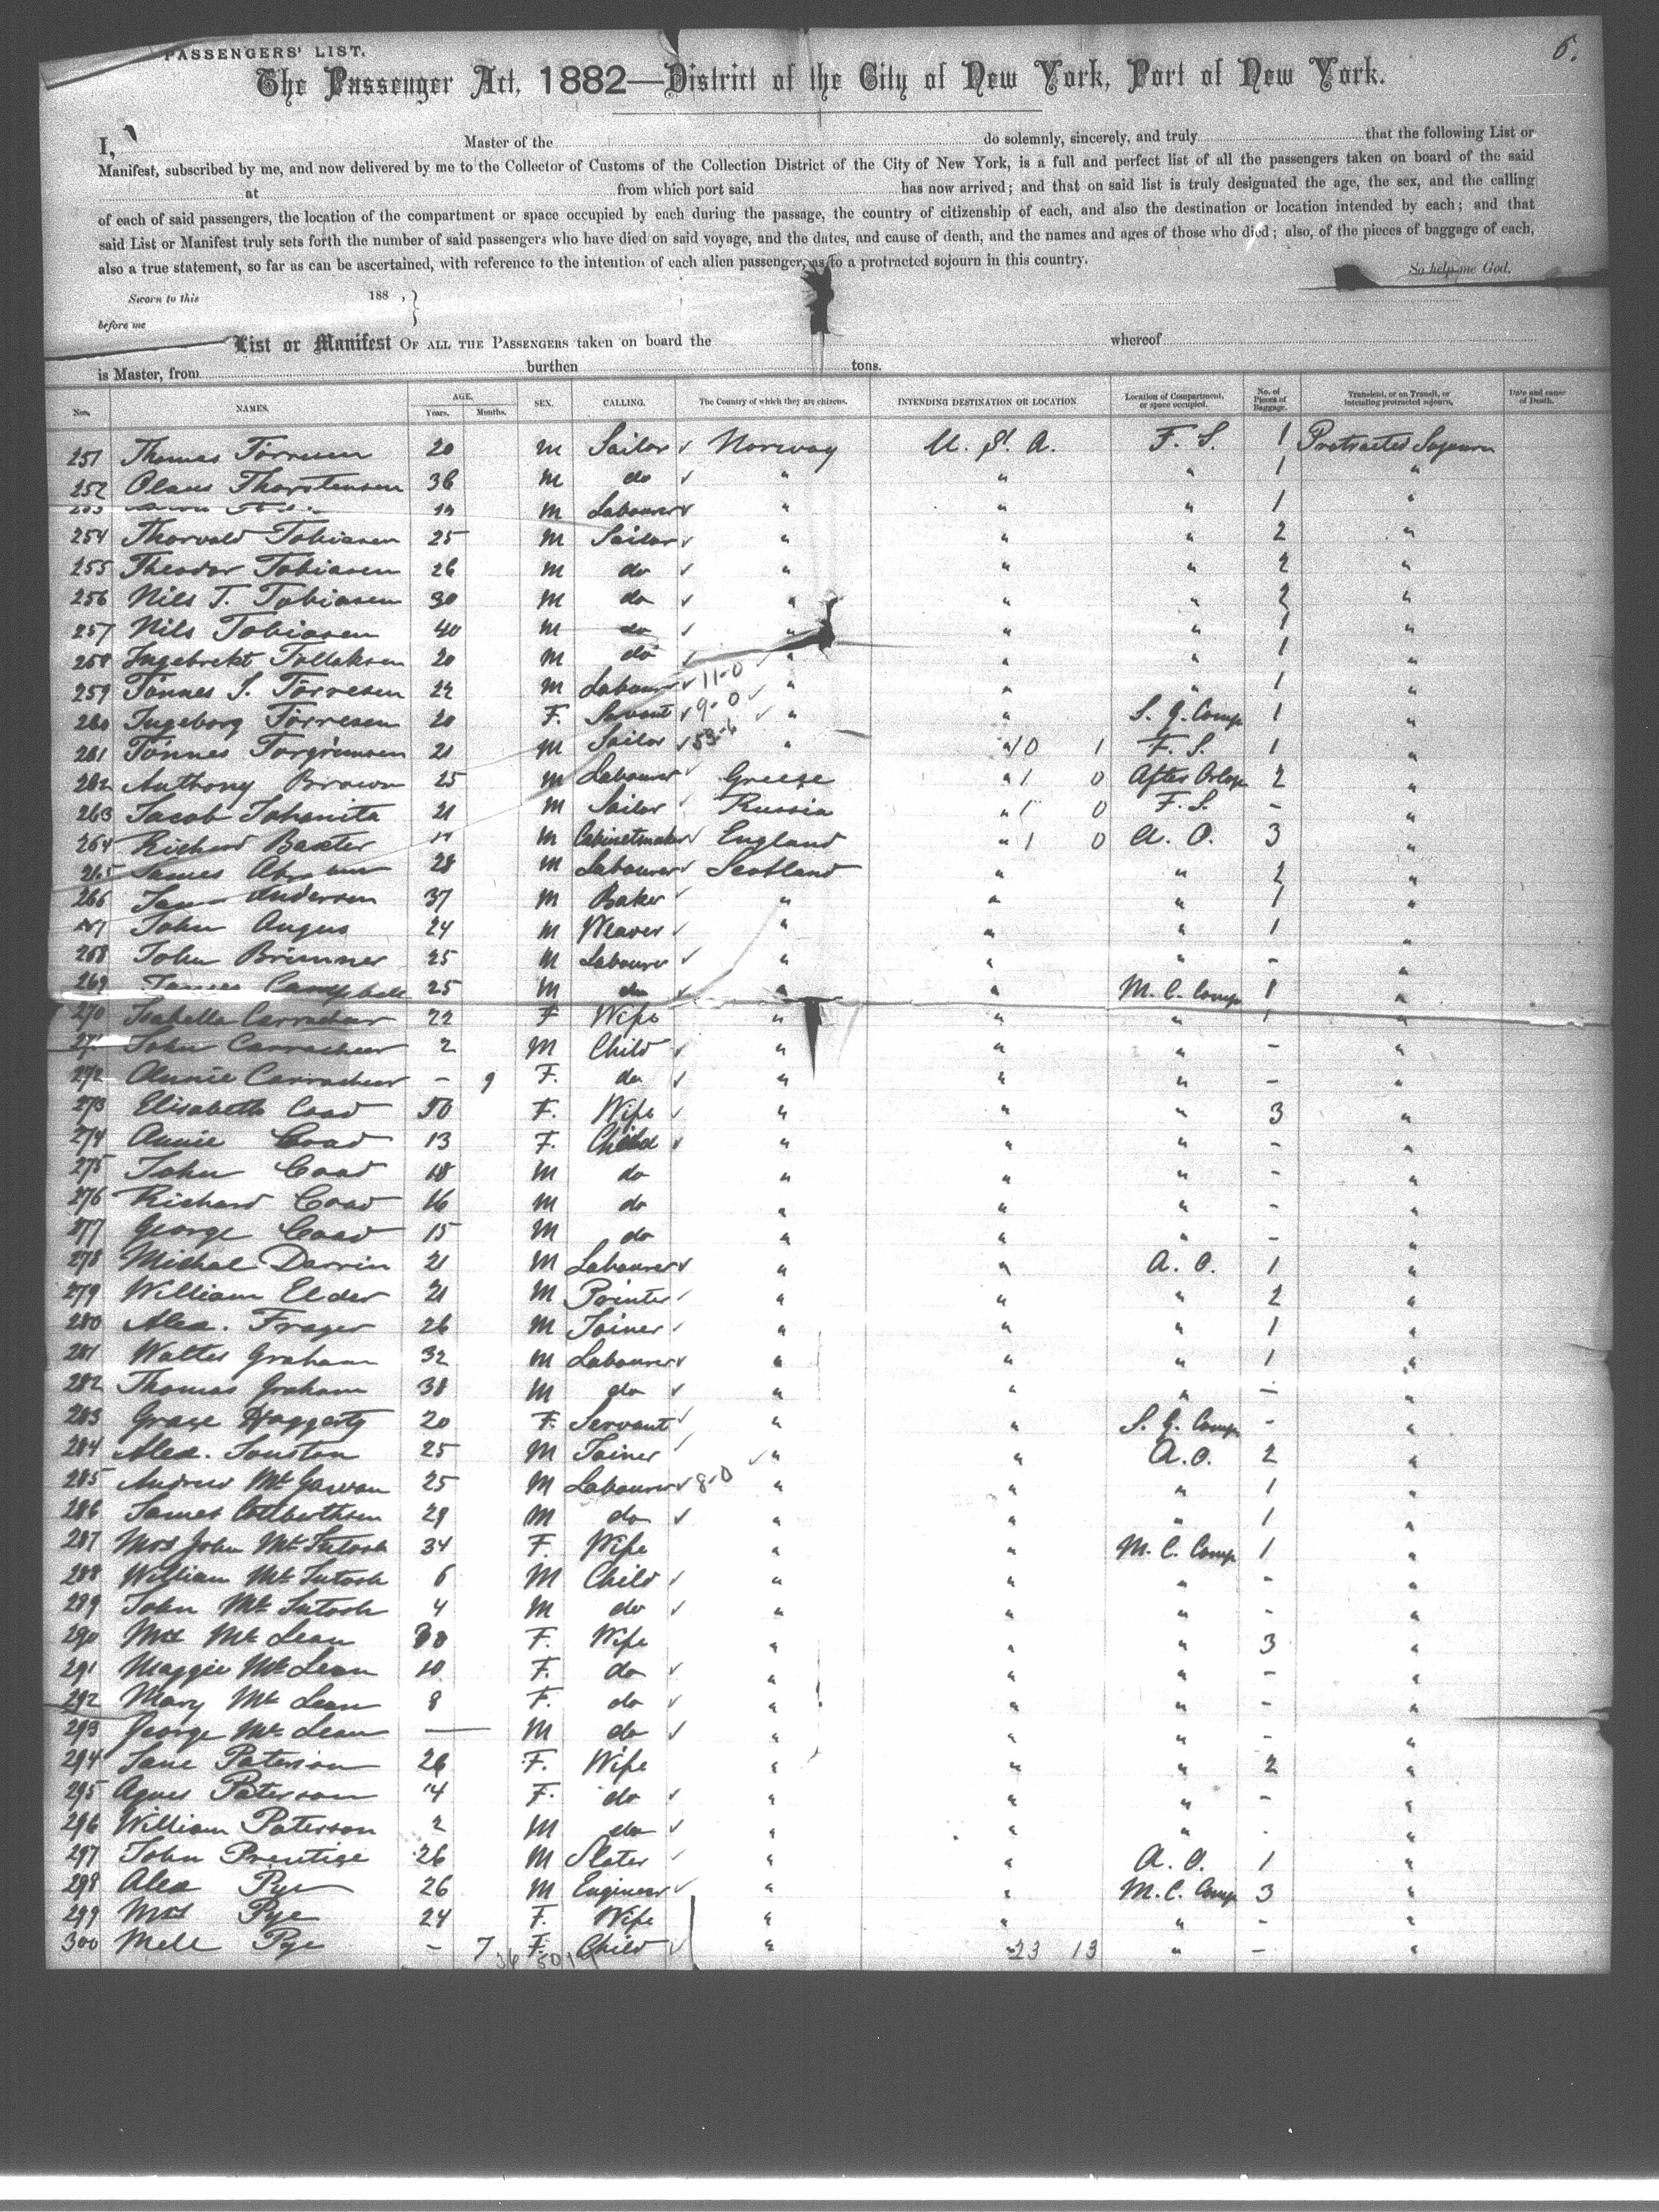 6.
PASSENGERS' LIST.
The Passenger Act, 1882—District of the City of New York, Port of New York.
I, Master of the do solemnly, sincerely, and truly that the following List or
Manifest, subscribed by me, and now delivered by me to the Collector of Customs of the Collection District of the City of New York, is a full and perfect list of all the passengers taken on board of the said
at from which port said has now arrived; and that on said list is truly designated the age, the sex, and the calling
of each of said passengers, the location of the compartment or space occupied by each during the passage, the country of citizenship of each, and also the destination or location intended by each; and that
said List or Manifest truly sets forth the number of said passengers who have died on said voyage, and the dates, and cause of death, and the names and ages of those who died; also, of the pieces of baggage of each,
also a true statement, so far as can be ascertained, with reference to the intention of each alien passenger, as to a protracted sojourn in this country.
So help me God.
Sworn to this 188 ,
before me
List or Manifest OF ALL THE PASSENGERS taken on board the whereof
is Master, from burthen tons.
Nos. NAMES. AGE. Years. Months. SEX. CALLING. The Country of which they are citizens. INTENDING DESTINATION OR LOCATION Location of Compartment, or space occupied. No. of Pieces of Baggage. Transient, or on Transit, or intending protracted sojourn. Date and cause of Death.
251 Thomas Törresen 20 M Sailor Norway U. St. A. F. S. 1 Protracted Sojourn
252 Olaus Thorstensen 36 M do " " " 1 "
M Labourer " " " 1 "
254 Thorvald Tobiasen 25 M Sailor " " " 2 "
255 Theodor Tobiasen 26 M do " " " 2 "
256 Nils T. Tobiasen 30 M do " " " 2 "
257 Nils Tobiasen 40 M do " " " 1 "
258 Ingebrekt Tollaksen 20 M do " " " 1 "
259 Tönnes S. Törresen M Labourer 11-0 " " " 1 "
260 Ingeborg Törresen 20 F. Servant 9-0 " " S. G. Comp 1 "
261 Tönnes Torgrimsen 21 M Sailor " " 10 1 F. S. 1 "
262 Anthony Brown 25 M Labourer Greece " 1 0 After Orlop 2 "
263 Jacob Johanita 21 M Sailor Russia " 1 0 F. S. - "
264 Richard Baxter M Cabinetmaker England " 1 0 A. O. 3 "
265 James 28 M Labourer Scotland " " 2 "
266 Anderson 37 M Baker " " " 1 "
John Angus 24 M Weaver " " " 1 "
268 John Brimner 25 M Labourer " " " - "
269 James Campbell 25 M do " " M. C. Comp 1 "
270 Isabella Carracher 22 F Wife " " " 1 "
271 John Carracher 2 M Child " " " - "
272 Annie Carracher - 9 F. do " " " - "
273 Elisabeth Coad 50 F. Wife " " " 3 "
274 Annie Coad 13 F. Child " " " - "
275 John Coad 18 M do " " " - "
276 Richard Coad 16 M do " " " - "
277 George Coad 15 M do " " " - "
278 Michal Darrin 21 M Labourer " " A. O. 1 "
279 William Elder 21 M Printer " " " 2 "
280 Alex. Frazer 26 M Joiner " " " 1 "
281 Walter Graham 32 M Labourer " " " 1 "
282 Thomas Graham 38 M do " " " - "
283 Grace Haggerty 20 F. Servant " " S. G. Comp - "
284 Alex. Souston 25 M Joiner " " A. O. 2 "
285 Andrew Mc Gawan 25 M Labourer 8-0 " " " 1 "
286 James 29 M do " " " 1 "
287 Mrs John Mc Intosh 34 F. Wife " " M. C. Comp 1 "
288 William Mc Intosh 6 M Child " " " - "
289 John Mc Intosh 4 M do " " " - "
290 Mrs Mc Lean F. Wife " " " 3 "
291 Maggie Mc Lean 10 F. do " " " - "
292 Mary Mc Lean 8 F. do " " " - "
293 George Mc Lean — M do " " " - "
294 Jane Paterson 26 F. Wife " " " 2 "
295 Agnes Paterson F. do " " " - "
296 William Paterson 2 M do " " " - "
297 John Prentice 26 M Slater " " A. O. 1 "
298 Alex Pye 26 M Engineer " " M. C. Comp 3 "
299 Mrs Pye 24 F. Wife " " " - "
300 Mell Pye - 7 F. Child " " 23 13 " - "